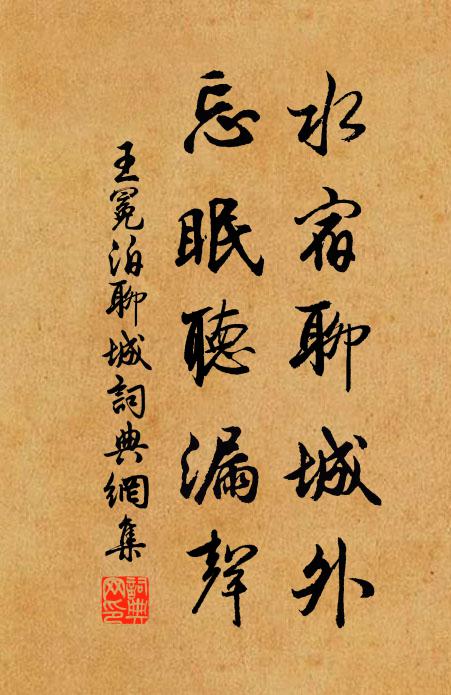 水宿聊城外
忘眠聽漏聲
王冕泊聊城詞典網集
詞典網印